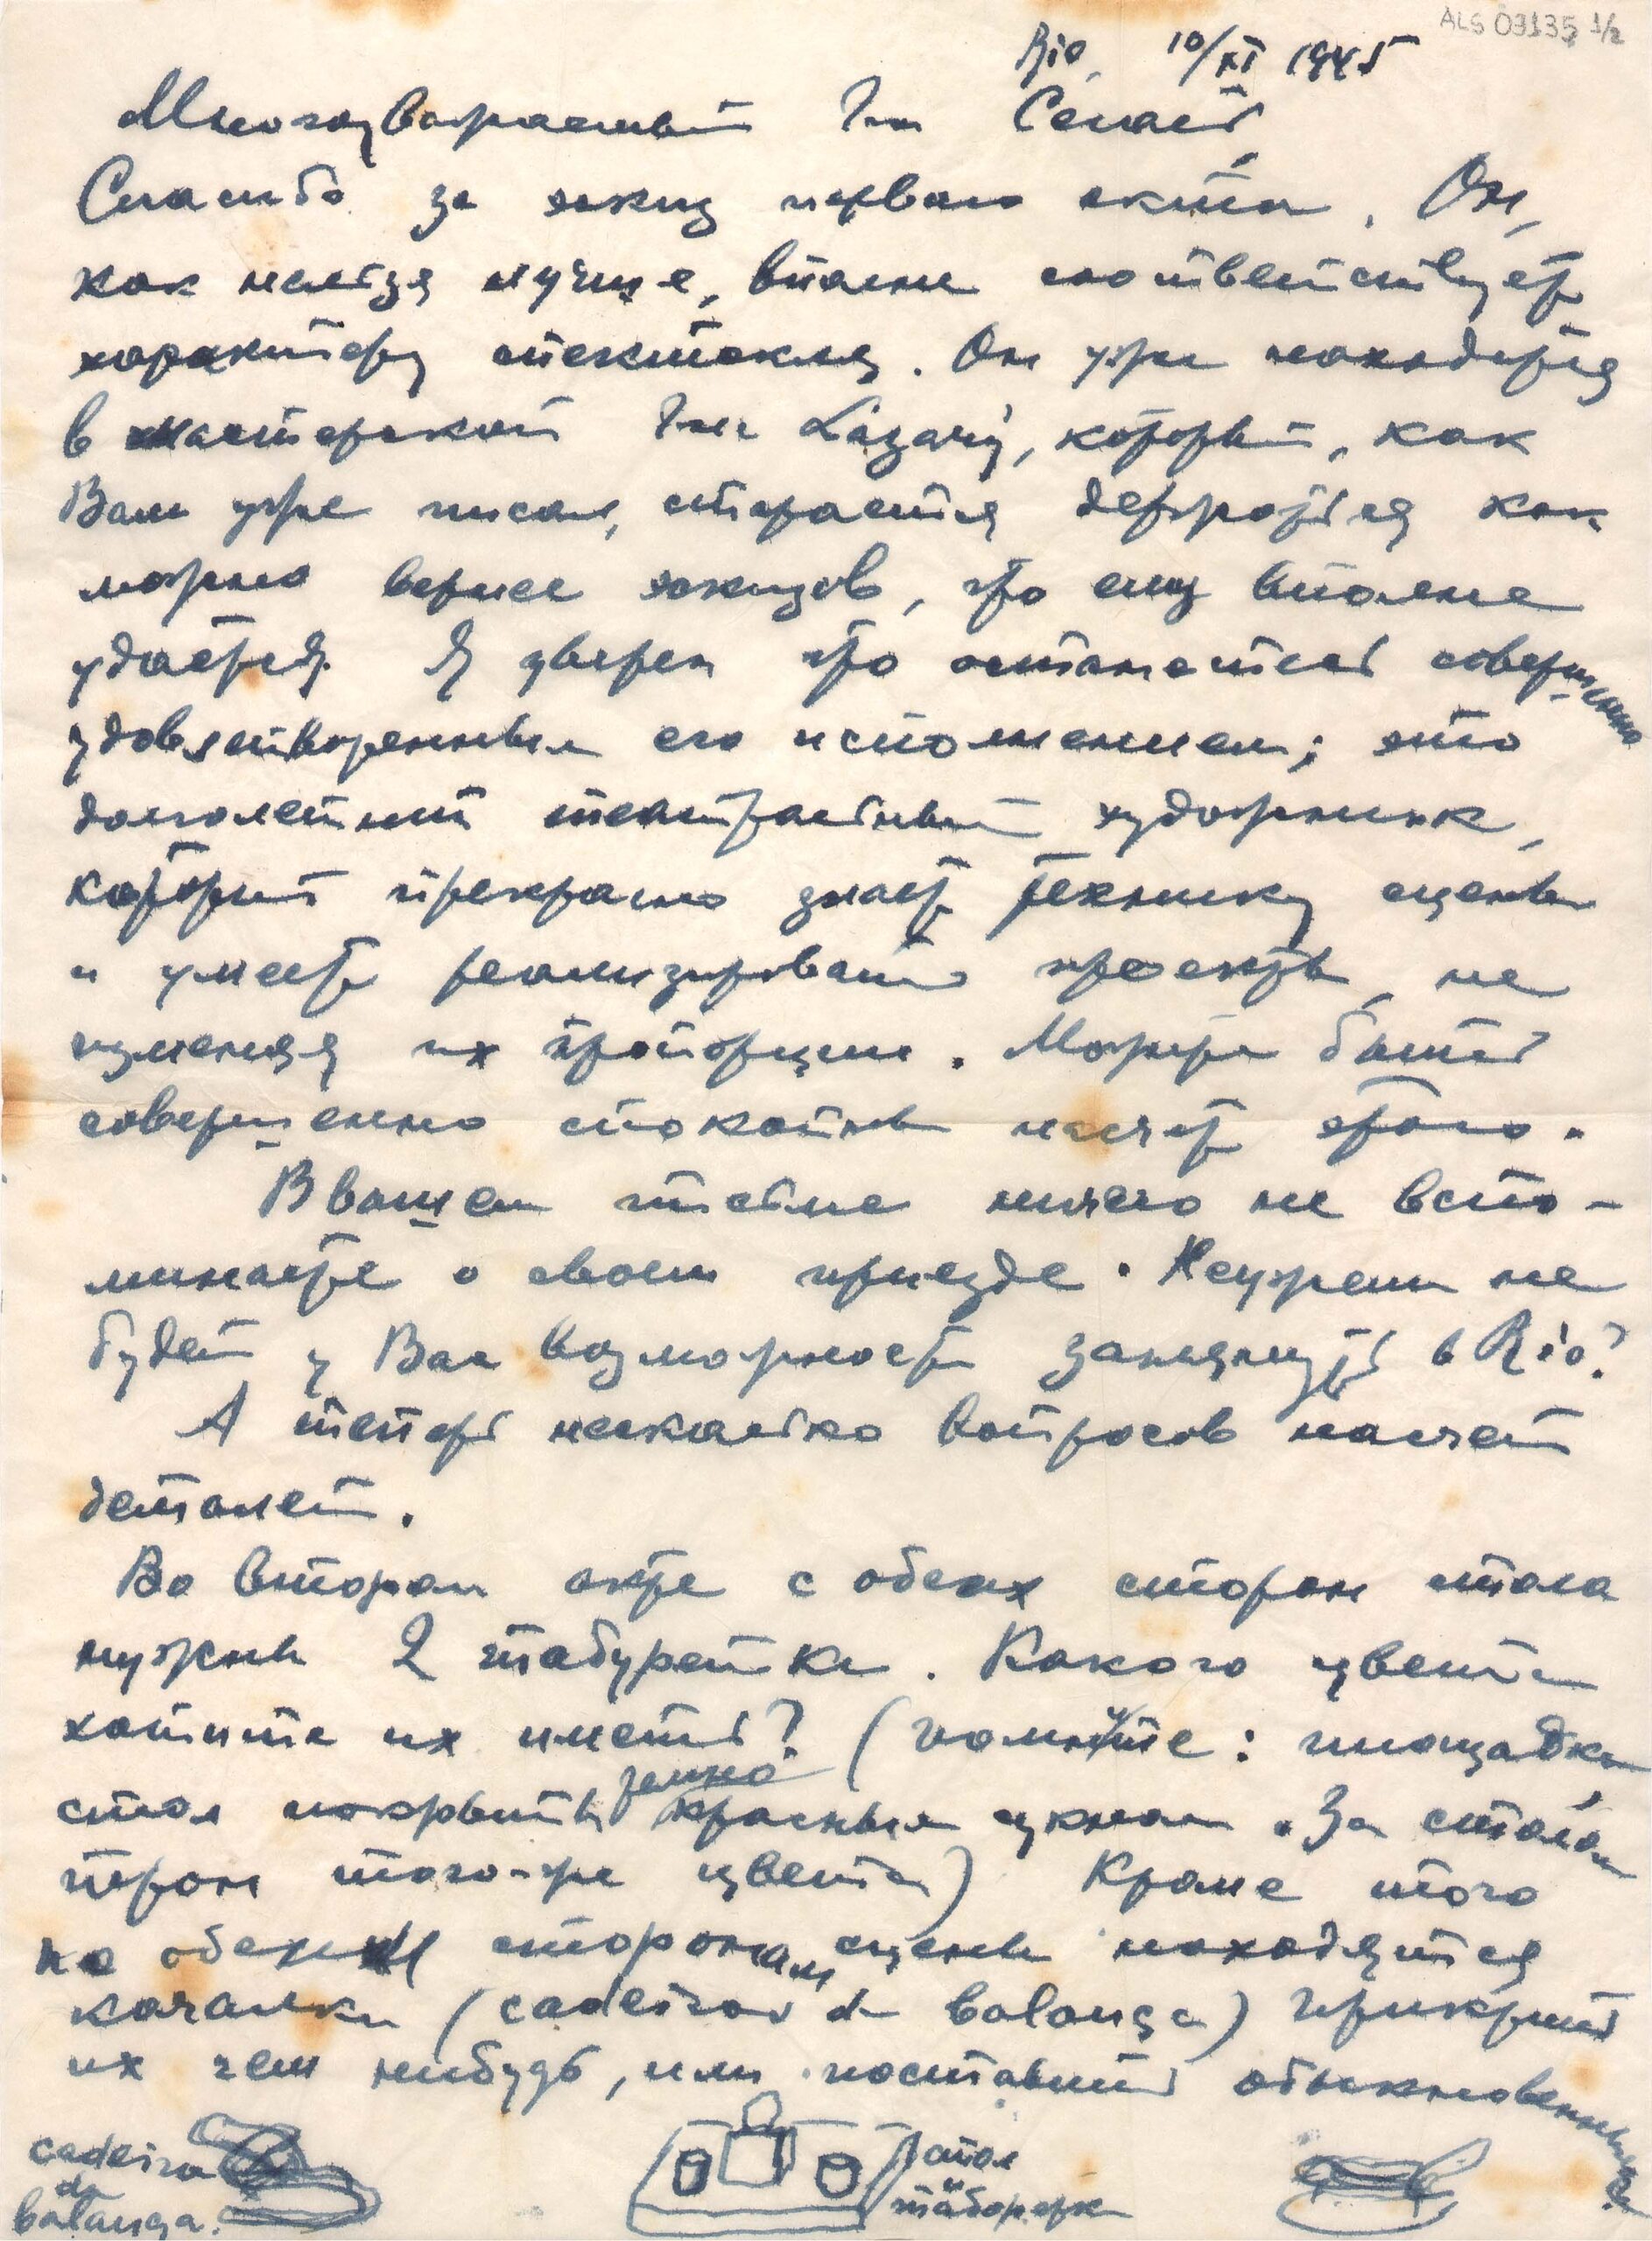 ALS 09135 1/2
Rio, 10/XI 1945
Многоуважаемый Гн Сегал,
Спасибо за эскиз первого акта. Он,
как нельзя лучше, вполне соответствует
характеру спектакля. Он уже находится
в мастерской Гна Lazary, который, как
Вам уже писал, старается держаться как
можно вернее эскизов, что ему вполне
удается. Я уверен что останетесь совершенно
удовлетворенным его исполнением; это
долголетний театральный художник,
который прекрасно знает технику сцены
и умеет реализировать проекты, не
изменяя их пропорции. Можете быть
совершенно спокойны насчет этого.
В вашем письме ничего не вспо-
минаете о своем приезде. Неужели не
будет у Вас возможности заглянуть в Rio?
А теперь несколько вопросов насчет
деталей.
Во втором акте с обеих сторон стола
нужны 2 табуретки. Какого цвета
хотите их иметь? (помните: площадка
стол покрыты темно красным сукном. За столом
трон того-же цвета) Кроме того
по обеим сторонам сцены находятся
качалки (cadeiras de balança) прикрыть
их чем нибудь, или поставить обыкновенные?
cadeira
de
balança.
стол
и
табуретки